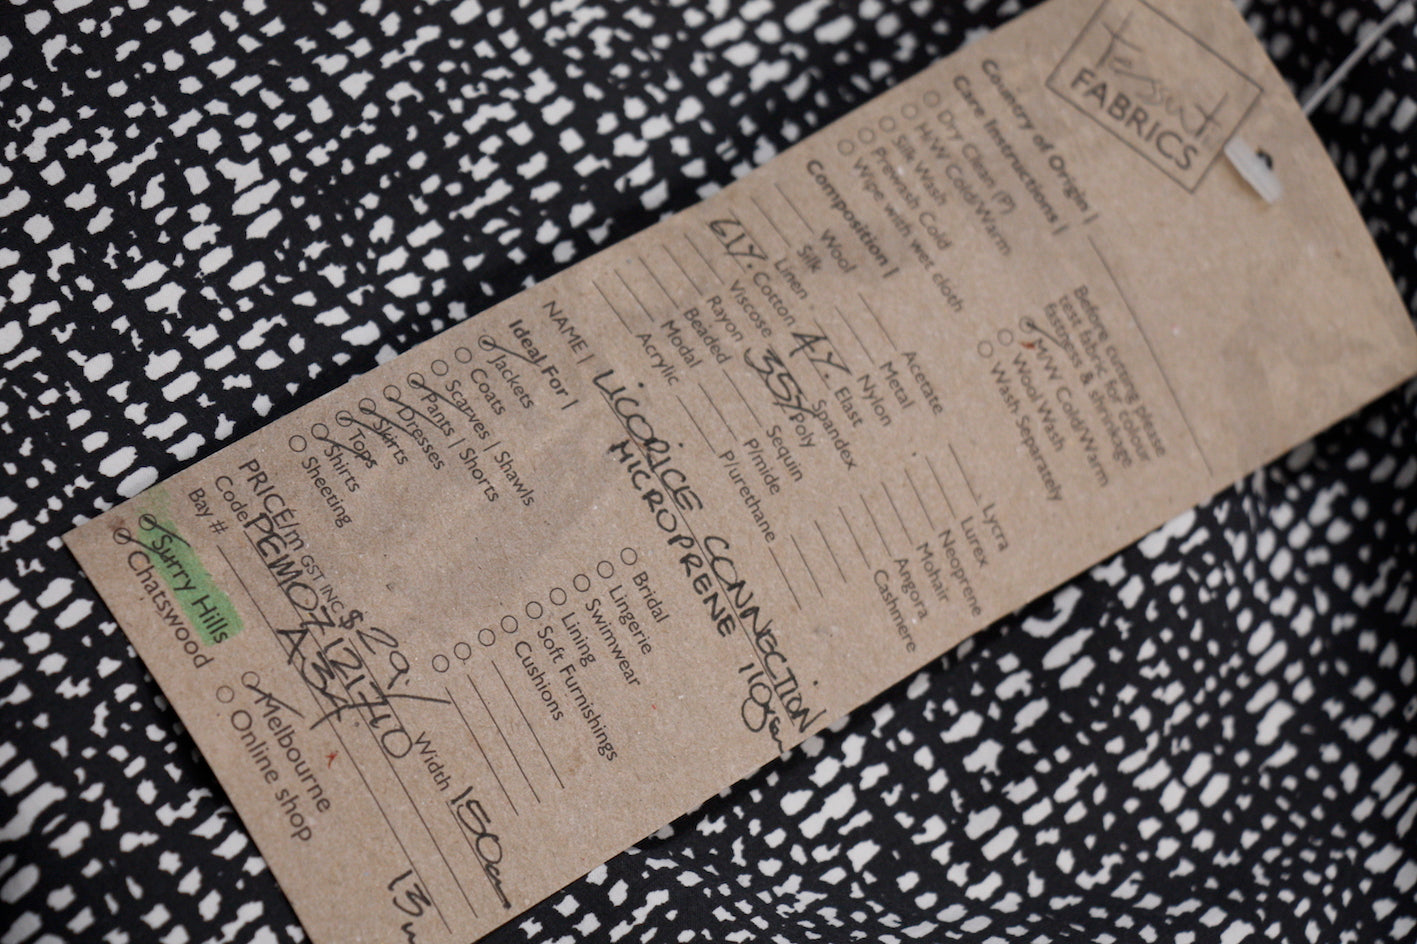 Tessuti
FABRICS
Country of Origin |
Care Instructions |
Dry Clean (P)
H/W Cold/Warm
Silk Wash
Prewash Cold
Wipe with wet cloth
Before cutting please
test fabric for colour
fastness & shrinkage
M/W Cold/Warm
Wool Wash
Wash Separately
Composition |
Wool
Silk
Linen
61%. Cotton
Viscose
Rayon
Beaded
Modal
Acrylic
Acetate
Metal
Nylon
4%. Elast
Spandex
35% Poly
Sequin
P/mide
P/urethane
Lycra
Lurex
Neoprene
Mohair
Angora
Cashmere
NAME | LICORICE CONNECTION
MICROPRENE
Ideal For |
Jackets
Coats
Scarves | Shawls
Pants | Shorts
Dresses
Skirts
Tops
Shirts
Sheeting
Bridal
Lingerie
Swimwear
Lining
Soft Furnishings
Cushions
PRICE/m GST INC $29./ Width 150cm
Code
Bay #
Surry Hills
Chatswood
Melbourne
Online shop